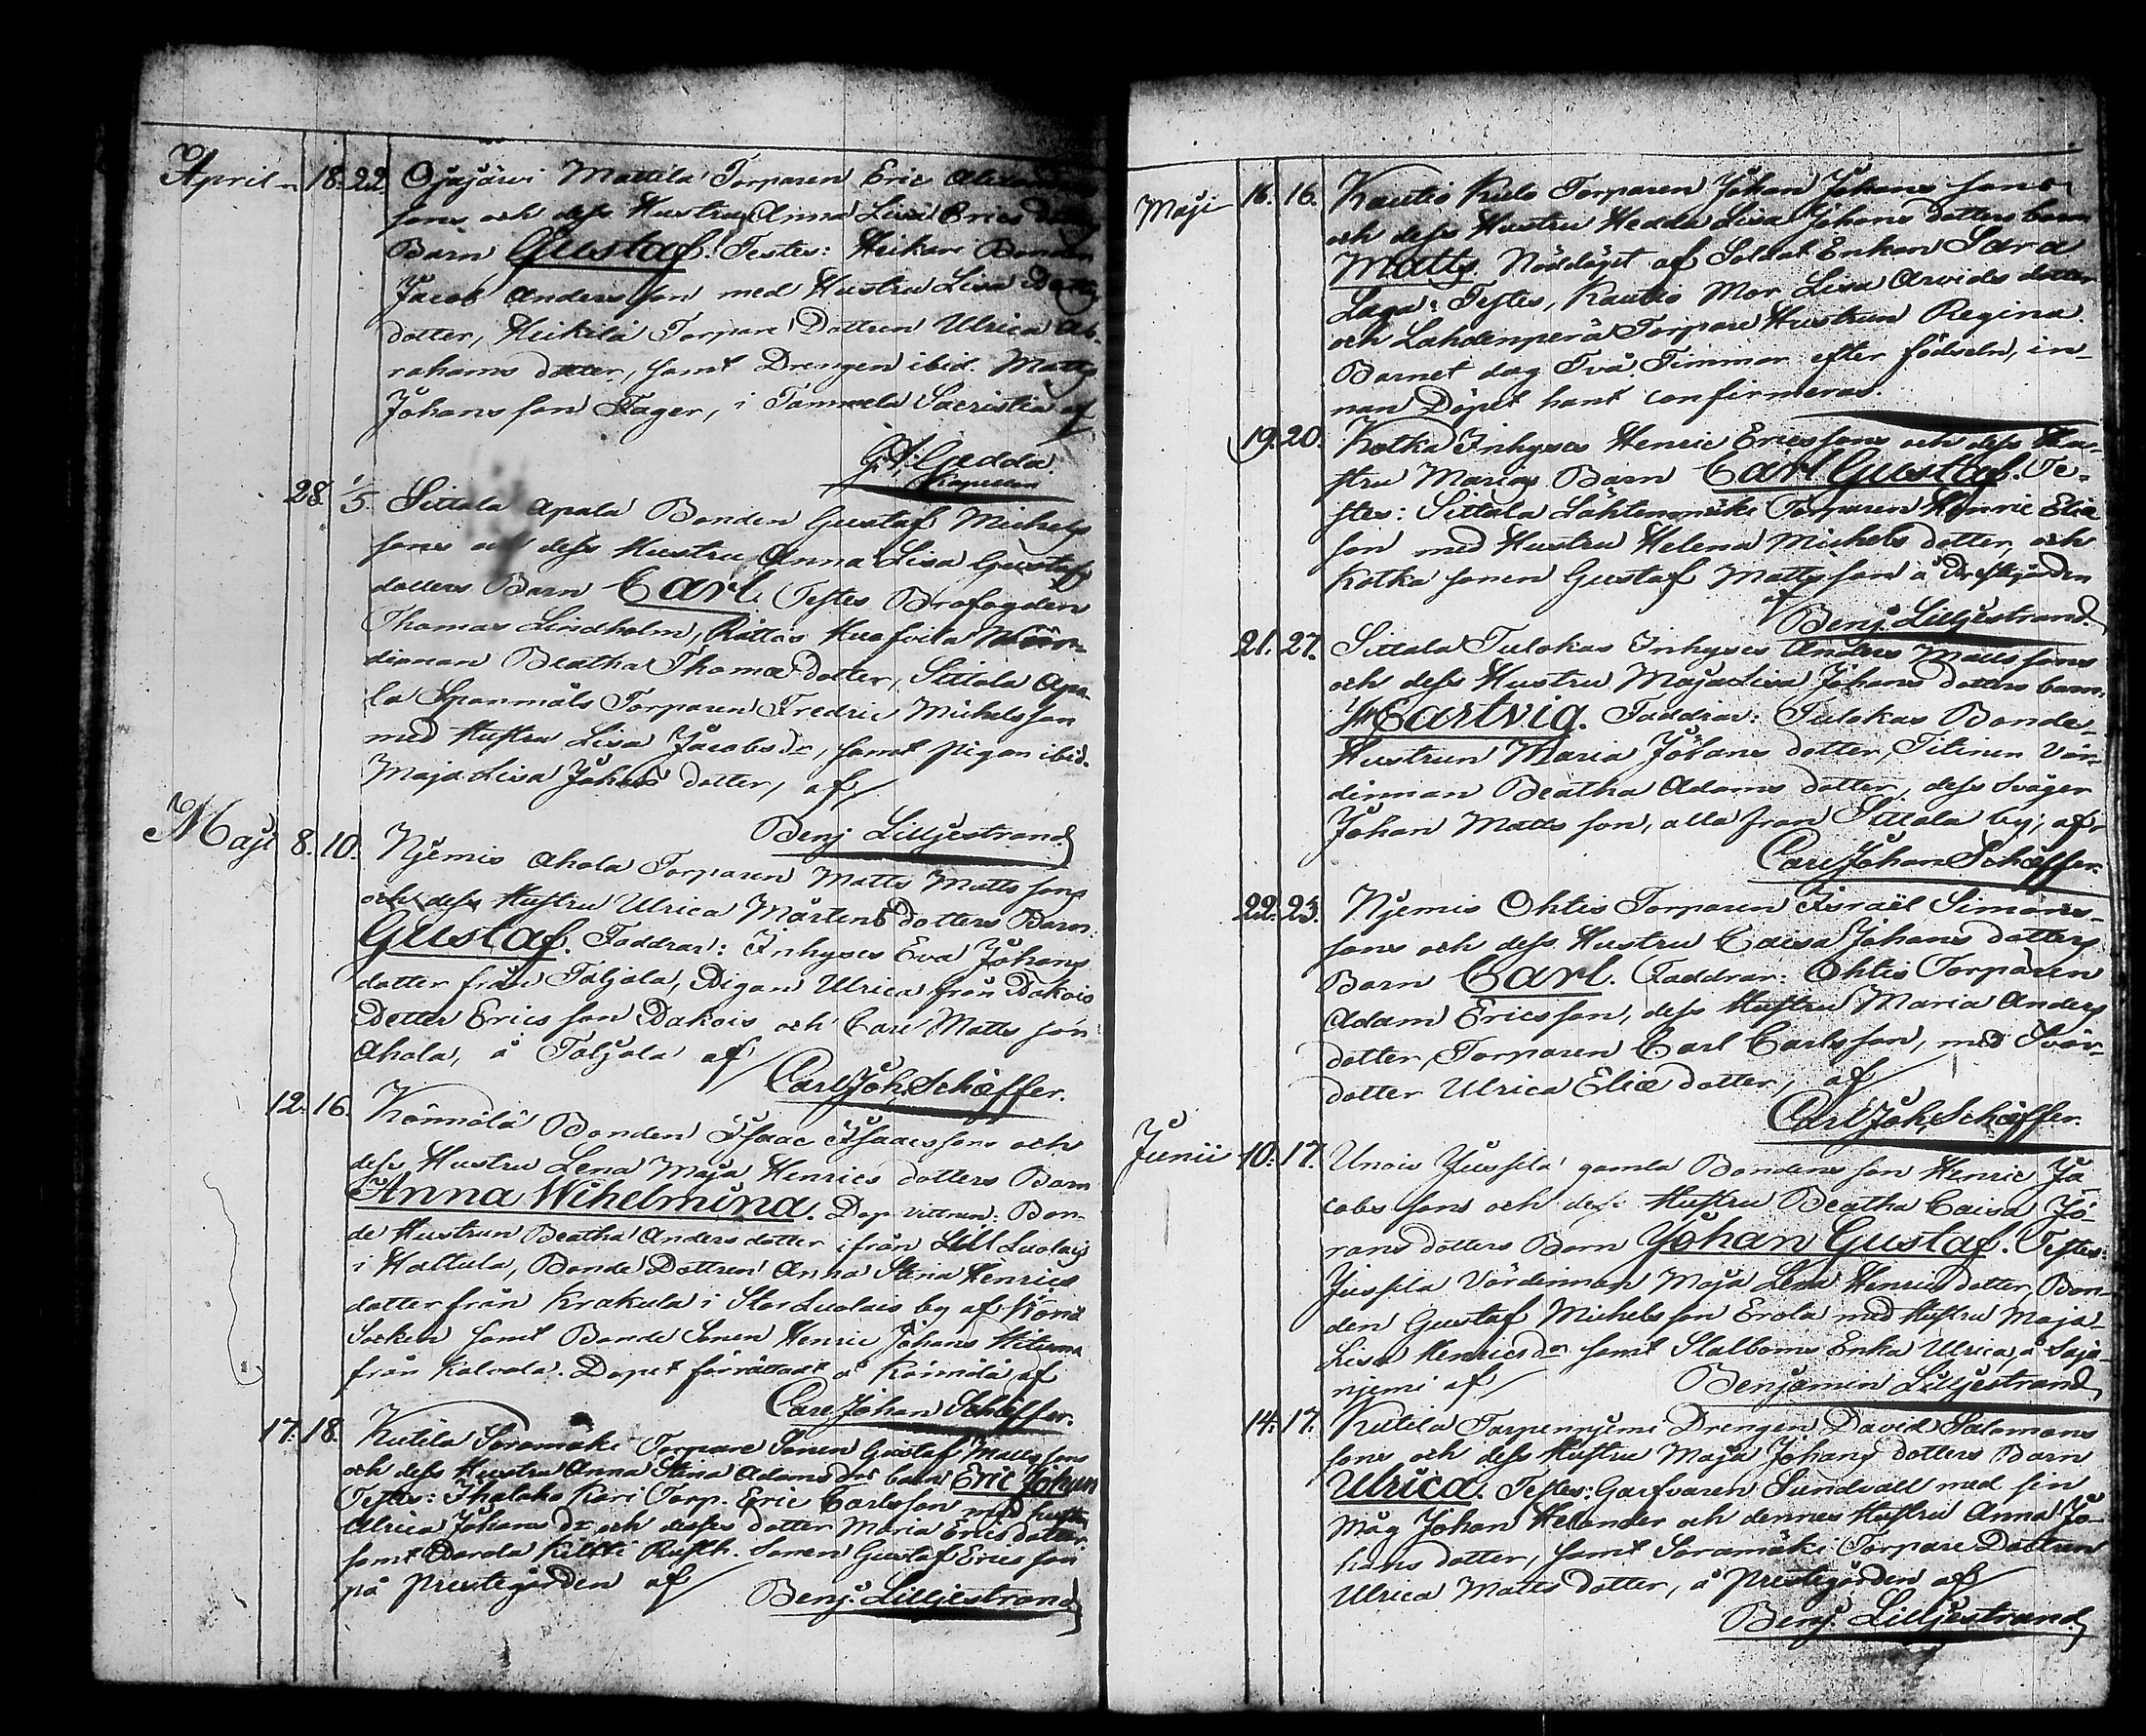 April 18. 22 Ojajärvi Mattila Torparen Eric Alexanders
sons och dess Hustru Anna Lisa Erics dotters
Barn Gustaf. Testes: Heikare Bonden
Jacob Anders son med Hustru Lisa
dotter, Heikilä Torpare Dottren Ulrica Ab-
rahams dotter, samt Drengen ibid. Matts
Johans son Fager, i Tammela Sacristia af
G. A: Gedda.
Capellan
28. 1/5. Sittala Apala Bonden Gustaf Michels
sons och dess Hustru Anna Lisa Gustafs
dotters Barn Carl. Testes Brofogden
Thomas Lindholm, Rättäs Huofvila Wärn-
dinnan Beatha Thomæ dotter, Sittala Apa-
la Spanmåls Torparen Fredric Michelsson
med Hustru Lisa Jacobs dr, samt pigan ibid.
Maja Lisa Johans dotter, af
Benj Lilljestrand
Maji 8. 10. Njemis Ahola Torparen Matts Matts sons
och dess Hustru Ulrica Mårtens dotters Barn:
Gustaf. Faddrar: Inhyses Eva Johans
dotter från Taljala, Pigan Ulrica från Dakois
Petter Erics son Dakois och Carl Matts son
Ahola, å Taljala af
Carl Joh. Schæffer.
12. 16. Könnölä Bonden Isaac Isaacssons och
dess Hustru Lena Maja Henrics dotters Barn
Anna Wihelmina. Dop vittnen: Bon-
de Hustrun Beatha Anders dotter ifrån Lill Luolais
i Hattula, Bonde Dottren Anna Stina Henrics
dotter från Krakula i Stor Luolais by af
Socken samt Bonde Sonen Henric Johans
från Kalvola. Dopet förrättadt å Könnölä af
Carl Johan Schæffer.
17. 18. Kutila Soramäki Torpare Sonen Gustaf Mattssons
och dess Hustru Anna Stina Adams drs barn Eric Johan
Testes: Ihalako Kari Torp. Eric Carlsson med hustru
Ulrica Johans dr och desses dotter Maria Erics dotter
samt Parola Kiltti Rusth. Sonen Gustaf Erics son
på Prestegården af
Benj. Lilljestrand
Maji 16. 16. Kautio Kulo Torparen Johan Johans sons
och dess Hustru Hedda Lisa Johans dotters barn
Matts Nöddöpt af Soldat Enkan Sara
Laga: Testes, Kautio Mor Lisa Arvids dotter
och Lahdenperä Torpare Hustrun Regina.
Barnet dog Två Timmar efter födseln, in-
nan Döpet hant confirmeras.
19. 20. Kotka Inhyses Henric Ericssons och dess Hu-
stru Marias Barn Carl Gustaf. Te-
stes: Sittala Lähtenmäki Torparen Henric Eliæ
son med Hustru Helena Michels dotter, och
Kotka sonen Gustaf Matts son å Prestegården
af
Benj. Lilljestrand.
21. 27. Sittala Tulokas Inhyses Anders Matts sons
och dess Hustru Maja Lisa Johans dotters barn
Hartvig. Faddrar: Tulokas Bonde-
Hustrun Maria Johans dotter, Titinen Vär-
dinnan Beatha Adams dotter, dess Svåger
Johan Matts son, alla från Sittala by, af
Carl Johan Schæffer.
22. 25. Njemis Ohtis Torparen Israël Simons-
sons och dess Hustru Caisa Johans dotters
Barn Carl. Faddrar: Ohtis Torparen
Adam Ericsson, dess Hustru Maria Anders
dotter, Torparen Carl Carlsson, med Svär-
dotter Ulrica Eliæ dotter, af
Carl Joh. Schæffer.
Junii 10. 17. Unois Jussila gamla Bondens son Henric Ja-
cobs sons och dess Hustru Beatha Caisa Jö-
rans dotters Barn Johan Gustaf. Testes:
Jussila Värdinnan Maja Lena Henrics dotter, Bon-
den Gustaf Michels son Erola med Hustru Maja
Lisa Henrics dr samt Stalboms Enka Ulrica, å Saja-
njemi af
Benjamin Lilljestrand
14. 17. Kutila Torpennjemi Drengen David Salomons
sons och dess Hustru Maja Johans dotters Barn
Ulrica. Testes: Garfvaren Sundvall med sin
Måg Johan Helander och dennes Hustru Anna Jo-
hans dotter, samt Soramäki Torpare Dottren
Ulrica Matts dotter, å Prestegården af
Benj. Lilljestrand